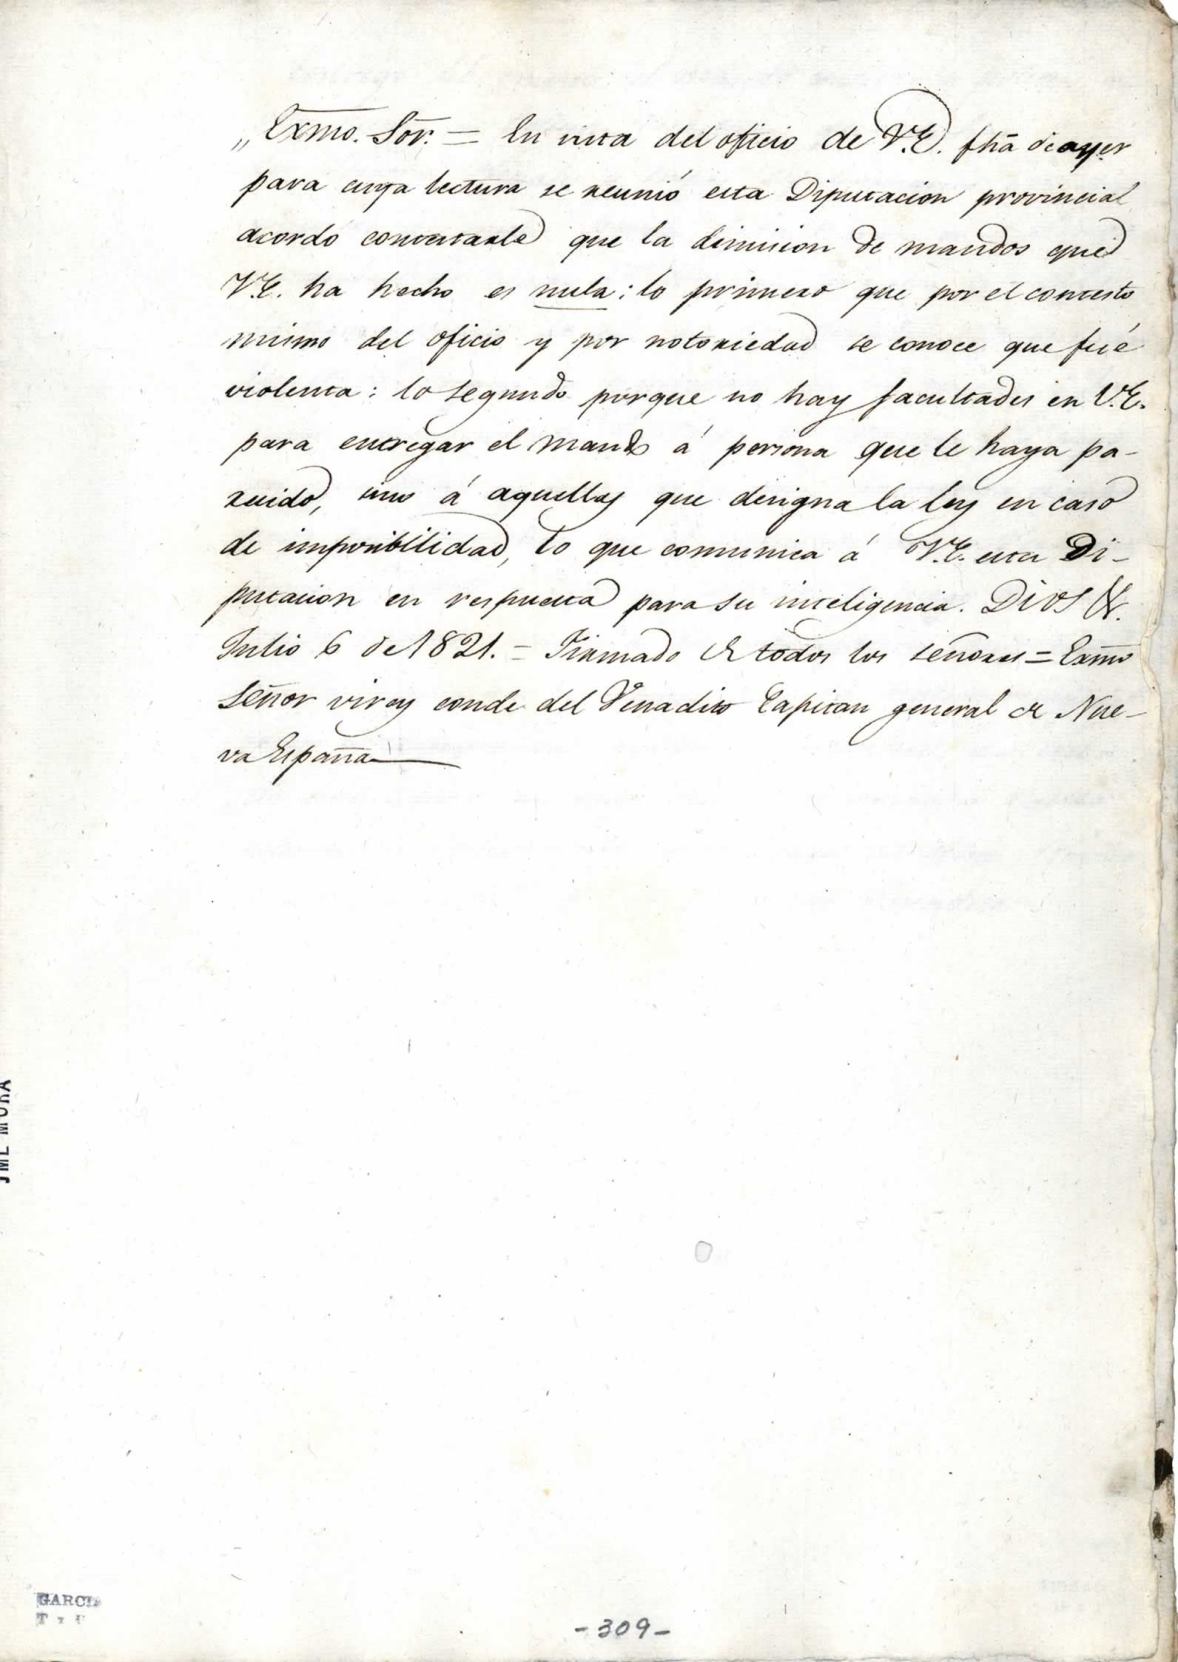 „Exmo. Sor. = En vista del oficio de V.E. fhã de ayer
para cuya lectura se reunió esta Diputacion provincial
acordo contestarle que la dimision de mandos que
V.E. ha hecho es nula: lo primero que por el contesto
mismo del oficio y por notoriedad se conoce que fué
violenta: lo segundo porque no hay facultades en V.E.
para entregar el mando á persona que le haya pa-
recido, sino á aquellas que designa la ley en caso
de imposibilidad, lo que comunica á V.E. esta Di-
putacion en respuesta para su inteligencia. Dios &.
Julio 6 de 1821. = Firmado de todos los señores = Exmo
señor virey conde del Venadito Capitan general de Nue-
va España
JML MORA
GARCIA
- 309 -